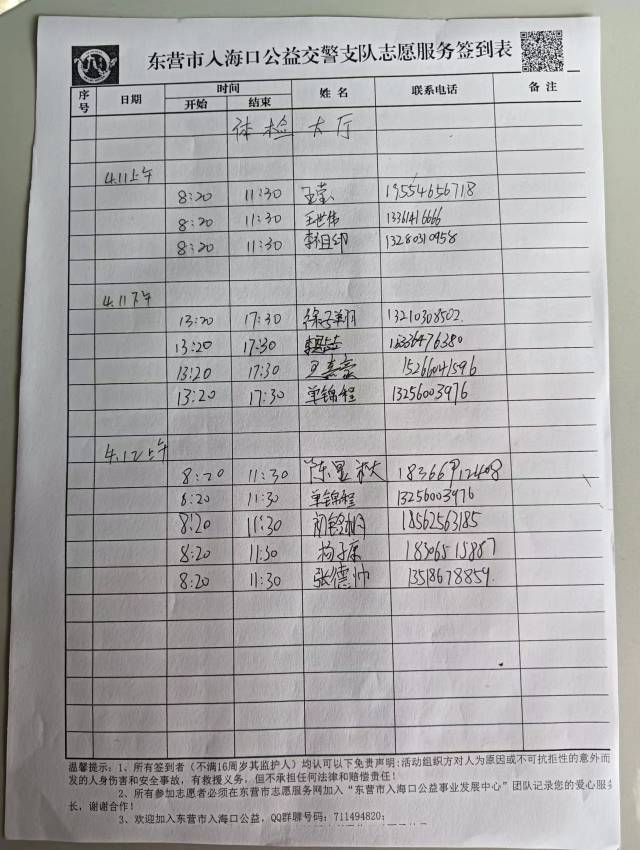 东营市入海口公益交警支队志愿服务签到表
序号 日期 时间 开始 结束 姓名 联系电话 备注
体检大厅
4.11上午
8:20 11:30 王 19554656718
8:20 11:30 王世伟 13361416666
8:20 11:30 李祖印 13280310958
4.11下午
13:20 17:30 徐子翔 13210308502
13:20 17:30 476380
13:20 17:30 15266041596
13:20 17:30 单锦程 13256003976
4.12上午
8:20 11:30 陈 18366912408
8:20 11:30 单锦程 13256003976
8:20 11:30 18562563185
8:20 11:30 杨子康 18306515887
8:20 11:30 张德帅 13518678859
温馨提示：1、所有签到者（不满16周岁其监护人）均认可以下免责声明:活动组织方对人为原因或不可抗拒性的意外而
发的人身伤害和安全事故，有救援义务，但不承担任何法律和赔偿责任！
2、所有参加志愿者必须在东营市志愿服务网加入“东营市入海口公益事业发展中心”团队记录您的爱心服务
长，谢谢合作！
3、欢迎加入东营市入海口公益，QQ群聊号码：711494820；